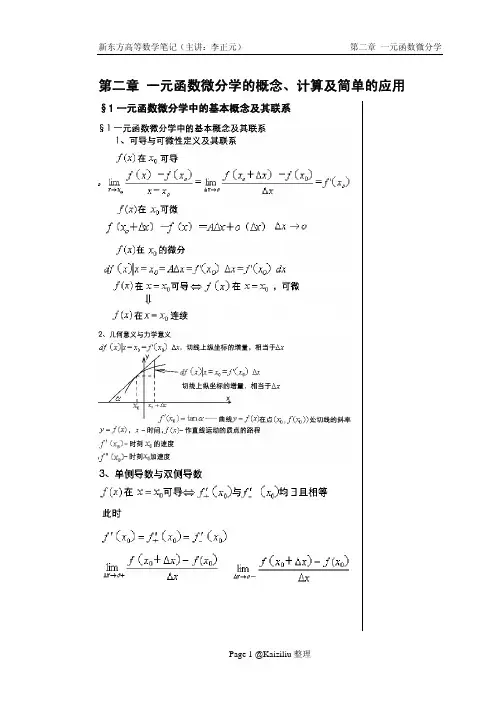 新东方高等数学笔记（主讲：李正元） 第二章 一元函数微分学
第二章 一元函数微分学的概念、计算及简单的应用
§1 一元函数微分学中的基本概念及其联系
§1 一元函数微分学中的基本概念及其联系
1、可导与可微性定义及其联系
f(x)在 x₀ 可导
lim x→x₀ (f(x)-f(x₀))/(x-x₀) = lim Δx→o (f(x₀+Δx)-f(x₀))/Δx = f'(x₀)
f(x)在 x₀可微
f(x₀+Δx)-f(x)=AΔx+o(Δx) Δx→o
f(x)在 x₀的微分
df(x)|x=x₀=AΔx=f'(x₀)Δx=f'(x₀)dx
f(x)在 x=x₀可导⇔f(x)在 x=x₀，可微
⇓
f(x)在x=x₀连续
2、几何意义与力学意义
df(x)|x=x₀=f'(x₀)Δx，切线上纵坐标的增量，相当于Δx
y
df(x)|x=x₀=f'(x₀)Δx
切线上纵坐标的增量，相当于Δx
α x₀ x₀+Δx x
f'(x₀)=tanα——曲线y=f(x)在点(x₀,f(x₀))处切线的斜率
y=f(x)，x-时间，f(x)-作直线运动的质点的路程
f'(x₀)-时刻x₀的速度
f''(x₀)-时刻x₀加速度
3、单侧导数与双侧导数
f(x)在 x=x₀可导⇔f'₊(x₀)与f'₋(x₀)均∃且相等
此时
f'(x₀)=f'₊(x₀)=f'₋(x₀)
lim Δx→o+ (f(x₀+Δx)-f(x₀))/Δx lim Δx→o- (f(x₀+Δx)-f(x₀))/Δx
Page 1 @Kaiziliu 整理